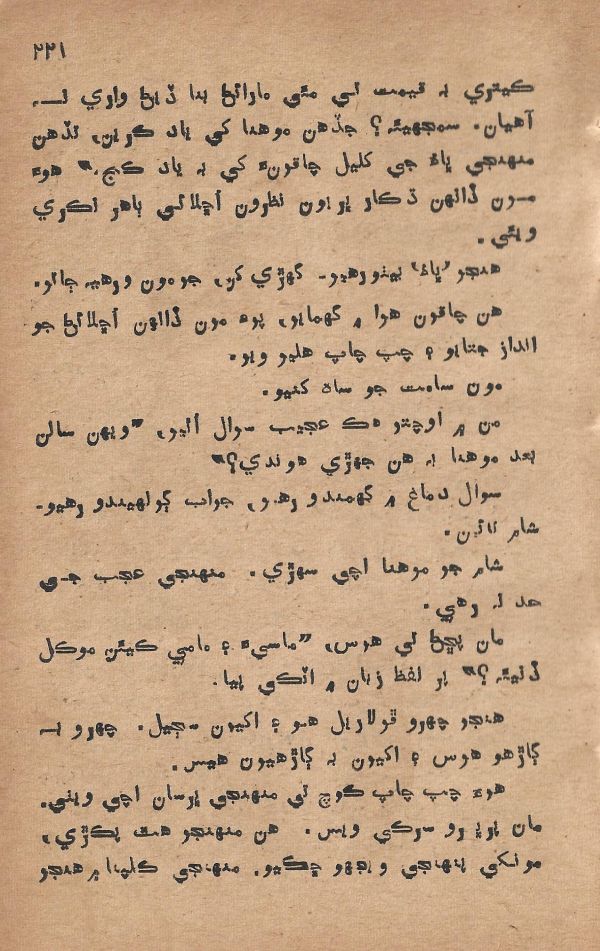 ۲۲۱
ڪيتري بہ قيمت تي مٿي مارائڻ بنا ڏيڻ واري نہ
آهيان. سمجهيئہ؟ جڏهن موهنا کي ياد ڪرين، تڏهن
منهنجي ڀاءُ جي کليل چاقوءَ کي بہ ياد ڪج.” هوءَ
مون ڏانهن ڌڪار ڀريون نظرون اُڇلائي ٻاهر نڪري
ويئي.
هنجو ‘ڀاءُ’ بيٺو رهيو۔ گهڙي کن، جو مون ورهيہ ڄاتو.
هن چاقون هوا ۾ گهمايو، پوءِ مون ڏانهن اُڇلائڻ جو
انداز جتايو ۽ چپ چاپ هليو ويو.
مون سامت جو ساھ کنيو.
من ۾ اوچتو هڪ عجيب سوال اُٿيو، “ويهن سالن
بعد موهنا بہ هن جهڙي هوندي؟”
سوال دماغ ۾ گهمندو رهيو، جواب ڳولهيندو رهيو۔
شام تائين.
شام جو موهنا اچي سهڙي. منهنجي عجب جي
حد نہ رهي.
مان پڇڻ تي هوس، “ماسيءَ ۽ مامي ڪيئن موڪل
ڏنيئہ؟” پر لفظ زبان ۾ اٽڪي پيا.
هنجو چهرو ڦولاريل هو ۽ اکيون سڄيل. چهرو بہ
ڳاڙهو هوس ۽ اکيون بہ ڳاڙهيون هيس.
هوءَ چپ چاپ ڪوچ تي منهنجي ڀرسان اچي ويٺي.
مان پرڀرو سرڪي ويس. هن منهنجو هٿ پڪڙي،
مونکي پنهنجي ويجهو ڇڪيو. منهنجي ڪلپنا ۾ هنجو